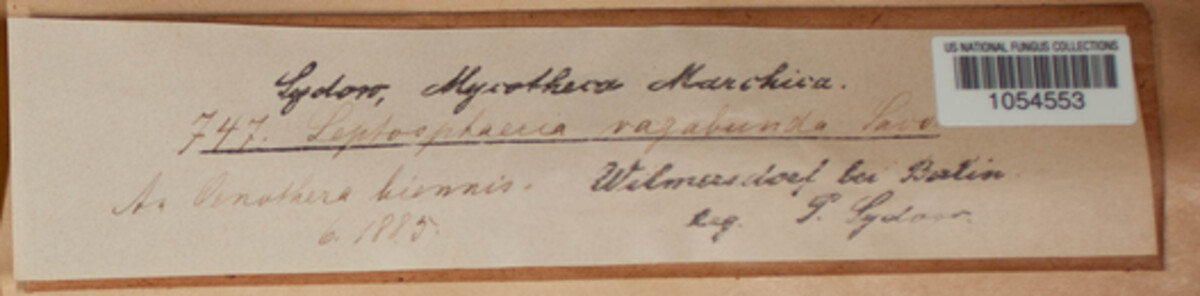 US NATIONAL FUNGUS COLLECTIONS
1054553
Sydow, Mycotheca Marchica.
747. Leptosphaeria vagabunda Sacc
An Oenothera biennis. Wilmersdorf bei Berlin.
6. 1885. leg. P. Sydow.